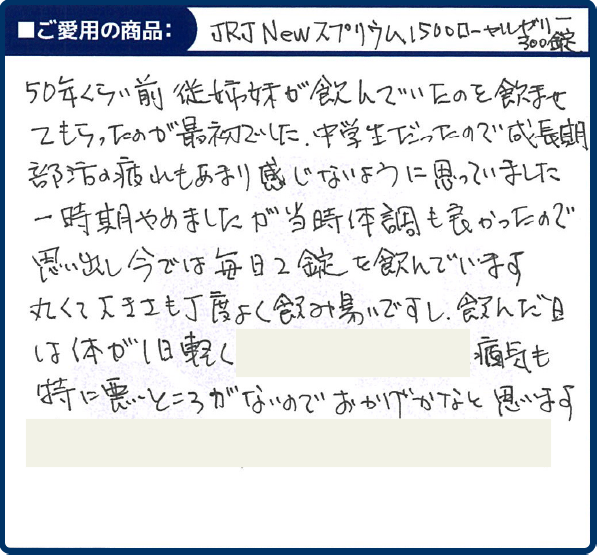 ■ご愛用の商品： JRJ Newスプリウム1500ローヤルゼリー
300錠
50年くらい前 従姉妹が飲んでいたのを飲ませ
てもらったのが最初でした．中学生だったので成長期
部活の疲れもあまり感じないように思っていました
一時期やめましたが当時体調も良かったので
思い出し今では毎日2錠を飲んでいます
丸くて大きさも丁度よく飲み易いですし．飲んだ日
は体が1日軽く 病気も
特に悪いところがないので おかげかなと思います